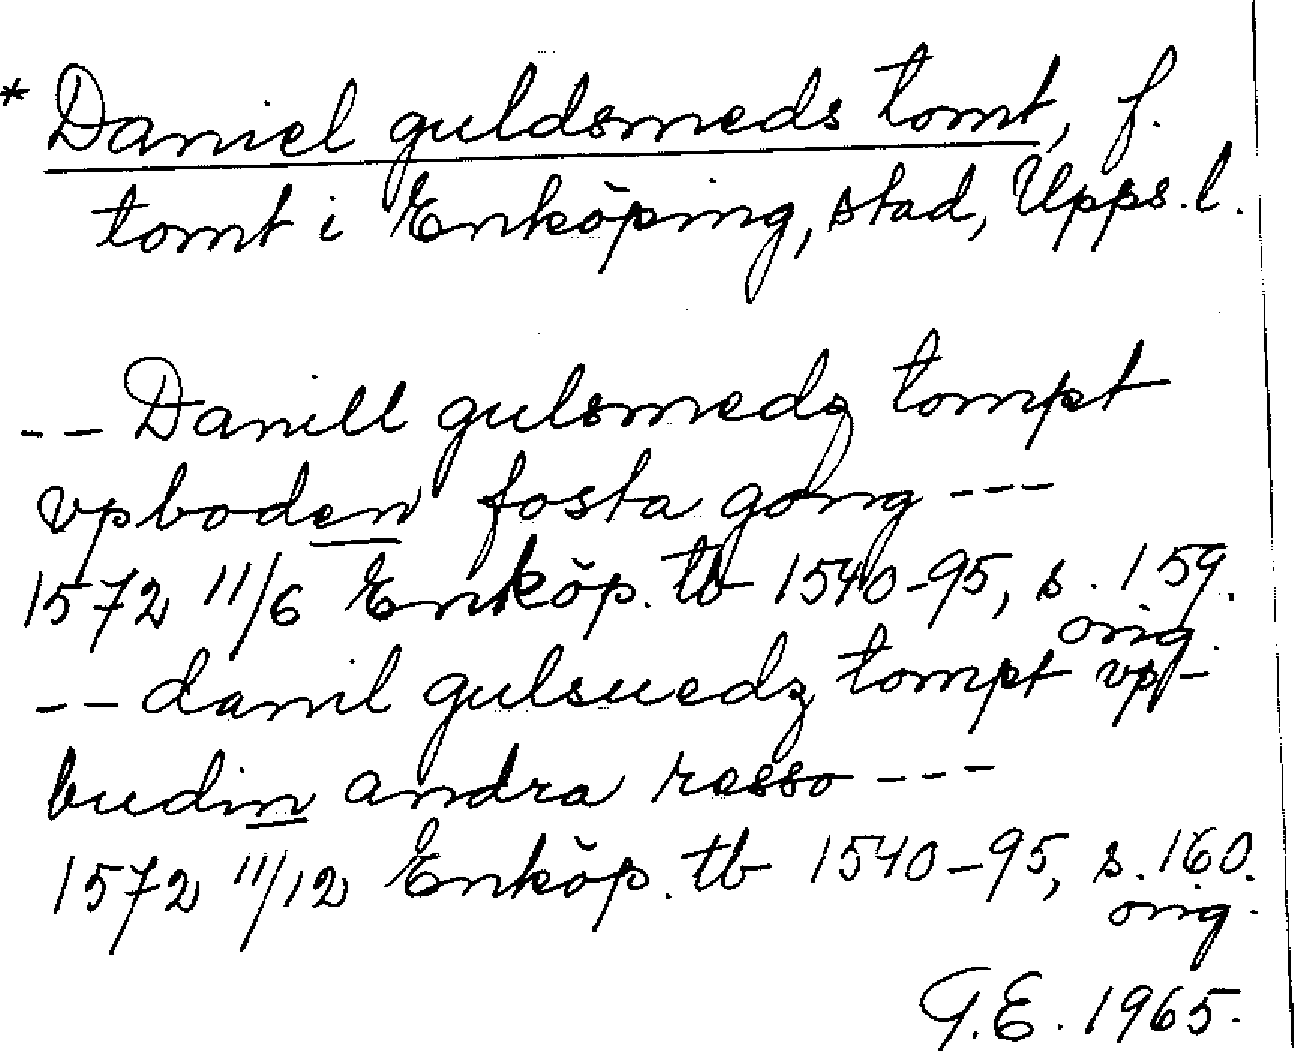 * Daniel guldsmeds tomt, f.
tomt i Enköping, stad, Upps. l.
-- Danill gulsmedz tompt
vpboden fosta gong ---
1572 11/6 Enköp. tb 1540-95, s. 159.
orig.
-- danil gulsuedz tompt vp-
budin andra resso ---
1572 11/12 Enköp. tb 1540-95, s. 160.
orig.
G.E. 1965.